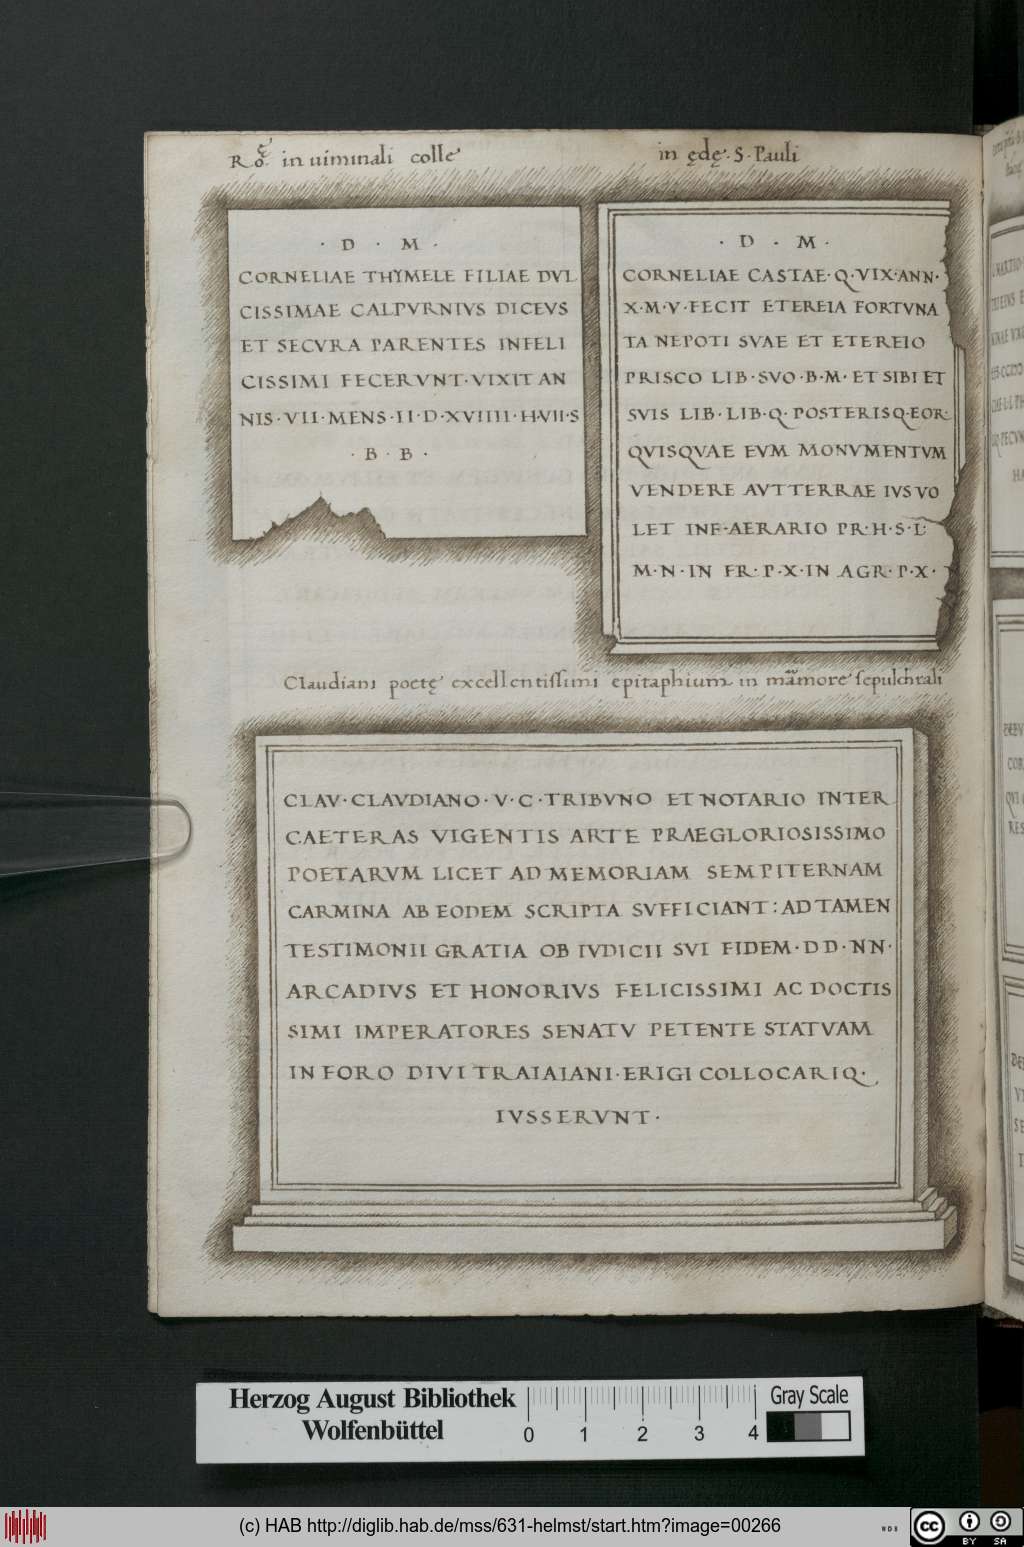 Roę. in uiminali colle
· D · M ·
CORNELIAE THYMELE FILIAE DVL
CISSIMAE CALPVRNIVS DICEVS
ET SECVRA PARENTES INFELI
CISSIMI FECERVNT·VIXIT AN
NIS·VII·MENS·II·D·XVIIII·H·VII·S
· B · B ·
in ędę·S·Pauli
· D · M ·
CORNELIAE CASTAE·Q·VIX·ANN·
X·M·V·FECIT ETEREIA FORTVNA
TA NEPOTI SVAE ET ETEREIO
PRISCO LIB·SVO·B·M·ET SIBI ET
SVIS LIB·LIB·Q·POSTERISQ·EOR·
QVISQVAE EVM MONVMENTVM
VENDERE AVTTERRAE IVS VO
LET INF·AERARIO PR·H·S·L·
M·N·IN FR·P·X·IN AGR·P·X·
Claudiani poetę excellentissimi epitaphium in marmore sepulchrali
CLAV·CLAVDIANO·V·C·TRIBVNO ET NOTARIO INTER
CAETERAS VIGENTIS ARTE PRAEGLORIOSISSIMO
POETARVM LICET AD MEMORIAM SEMPITERNAM
CARMINA AB EODEM SCRIPTA SVFFICIANT: AD TAMEN
TESTIMONII GRATIA OB IVDICII SVI FIDEM·D D·N N·
ARCADIVS ET HONORIVS FELICISSIMI AC DOCTIS
SIMI IMPERATORES SENATV PETENTE STATVAM
IN FORO DIVI TRAIAIANI·ERIGI COLLOCARIQ·
IVSSERVNT·
Herzog August Bibliothek
Wolfenbüttel
0 1 2 3 4
Gray Scale
(c) HAB http://diglib.hab.de/mss/631-helmst/start.htm?image=00266
WDB
cc BY SA